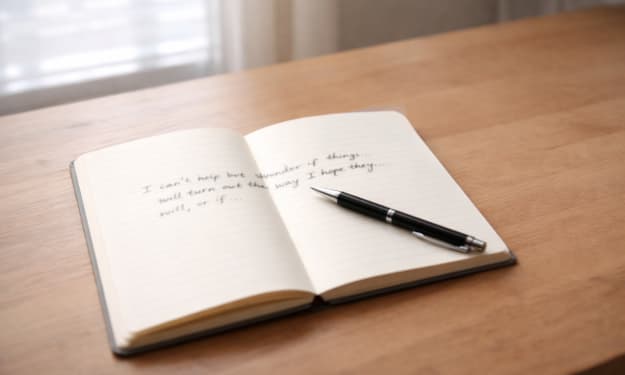 I can't help but wonder if things...
will turn out the way I hope they...
will, or if ...